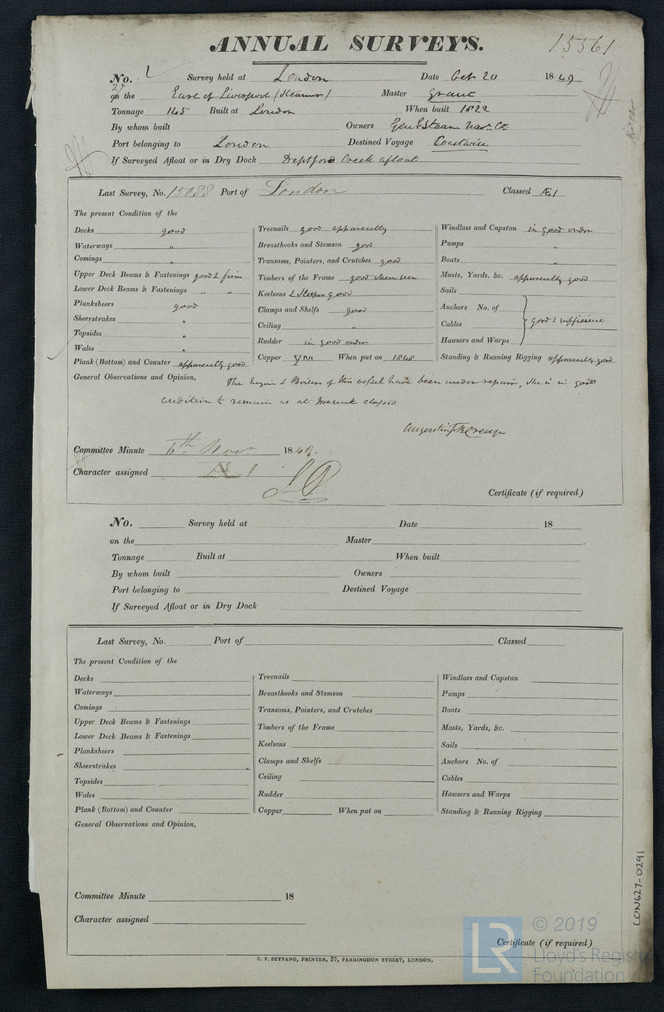 ANNUAL SURVEYS. 15561
No. Survey held at London Date Oct 20 1849
27
on the Earl of Liverpool (Steamer) Master Grant
Tonnage 145 Built at London When built 1822
By whom built Owners Genl Steam Nav. Co
Port belonging to London Destined Voyage Coastwise
If Surveyed Afloat or in Dry Dock Deptford Creek afloat
Last Survey, No. 15088 Port of London Classed Æ1
The present Condition of the
Decks good
Waterways "
Comings "
Upper Deck Beams & Fastenings good & firm
Lower Deck Beams & Fastenings " "
Planksheers good
Sheerstrakes "
Topsides "
Wales "
Plank (Bottom) and Counter apparently good
Treenails good apparently
Breasthooks and Stemson good
Transoms, Pointers, and Crutches good
Timbers of the Frame good when seen
Keelsons & Sleepers good
Clamps and Shelfs good
Ceiling "
Rudder in good order
Copper YM When put on 1848
Windlass and Capstan in good order
Pumps "
Boats "
Masts, Yards, &c. apparently good
Sails
Anchors No. of
Cables good & sufficient
Hawsers and Warps
Standing & Running Rigging apparently good
General Observations and Opinion, The Engine & Boilers of this vessel have been under repair, she is in good
condition to remain as at present classed
Committee Minute 6th Novr 1849.
Character assigned Æ1
Certificate (if required)
No. Survey held at Date 18
on the Master
Tonnage Built at When built
By whom built Owners
Port belonging to Destined Voyage
If Surveyed Afloat or in Dry Dock
Last Survey, No. Port of Classed
The present Condition of the
Decks
Waterways
Comings
Upper Deck Beams & Fastenings
Lower Deck Beams & Fastenings
Planksheers
Sheerstrakes
Topsides
Wales
Plank (Bottom) and Counter
Treenails
Breasthooks and Stemson
Transoms, Pointers, and Crutches
Timbers of the Frame
Keelsons
Clamps and Shelfs
Ceiling
Rudder
Copper When put on
Windlass and Capstan
Pumps
Boats
Masts, Yards, &c.
Sails
Anchors No. of
Cables
Hawsers and Warps
Standing & Running Rigging
General Observations and Opinion,
Committee Minute 18
Character assigned
Certificate (if required)
C. F. SEYFANG, PRINTER, 57, FARRINGDON STREET, LONDON.
LON627-0291
LR © 2019
Lloyd's Register
Foundation